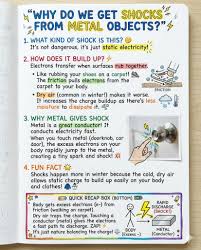 "WHY DO WE GET SHOCKS
FROM METAL OBJECTS?"
1. WHAT KIND OF SHOCK IS THIS?
It's not dangerous, it's just static electricity!
2. HOW DOES IT BUILD UP?
Electrons transfer when surfaces rub together.
• Like rubbing your shoes on a carpet!
The friction pulls electrons from the
carpet to your body.
• Dry air (common in winter!) makes it worse.
It increases the charge buildup as there's less
moisture to dissipate it.
3. WHY METAL GIVES SHOCK
Metal is a great conductor! It
conducts electricity very fast.
When you touch metal (doorknob, car
door), the excess electrons on your
body rapidly jump to the metal,
creating a tiny spark and shock!
4. FUN FACT
Shocks happen more in winter because the cold, dry air
allows static charge to build up easily on your body
and clothes!
QUICK RECAP BOX (BOTTOM)
Body gets excess electrons (e-) from
rubbing (friction).
Dry air traps the charge. Touching a
conductor (metal) gives the electrons
a fast path to discharge. ZAP!
It's just nature balancing charge!
RAPID
DISCHARGE
(SHOCK!)
BODY
METAL
(Conductor)